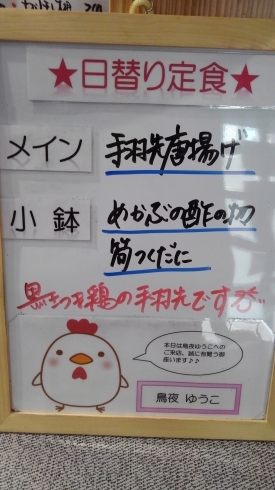 ★日替り定食★
メイン 手羽先唐揚げ
小鉢 めかぶの酢の物
筒つくだに
黒さつま鶏の手羽先です
本日は鳥夜ゆうこへの
ご来店。誠に有難う御
座います♪♪
鳥夜 ゆうこ